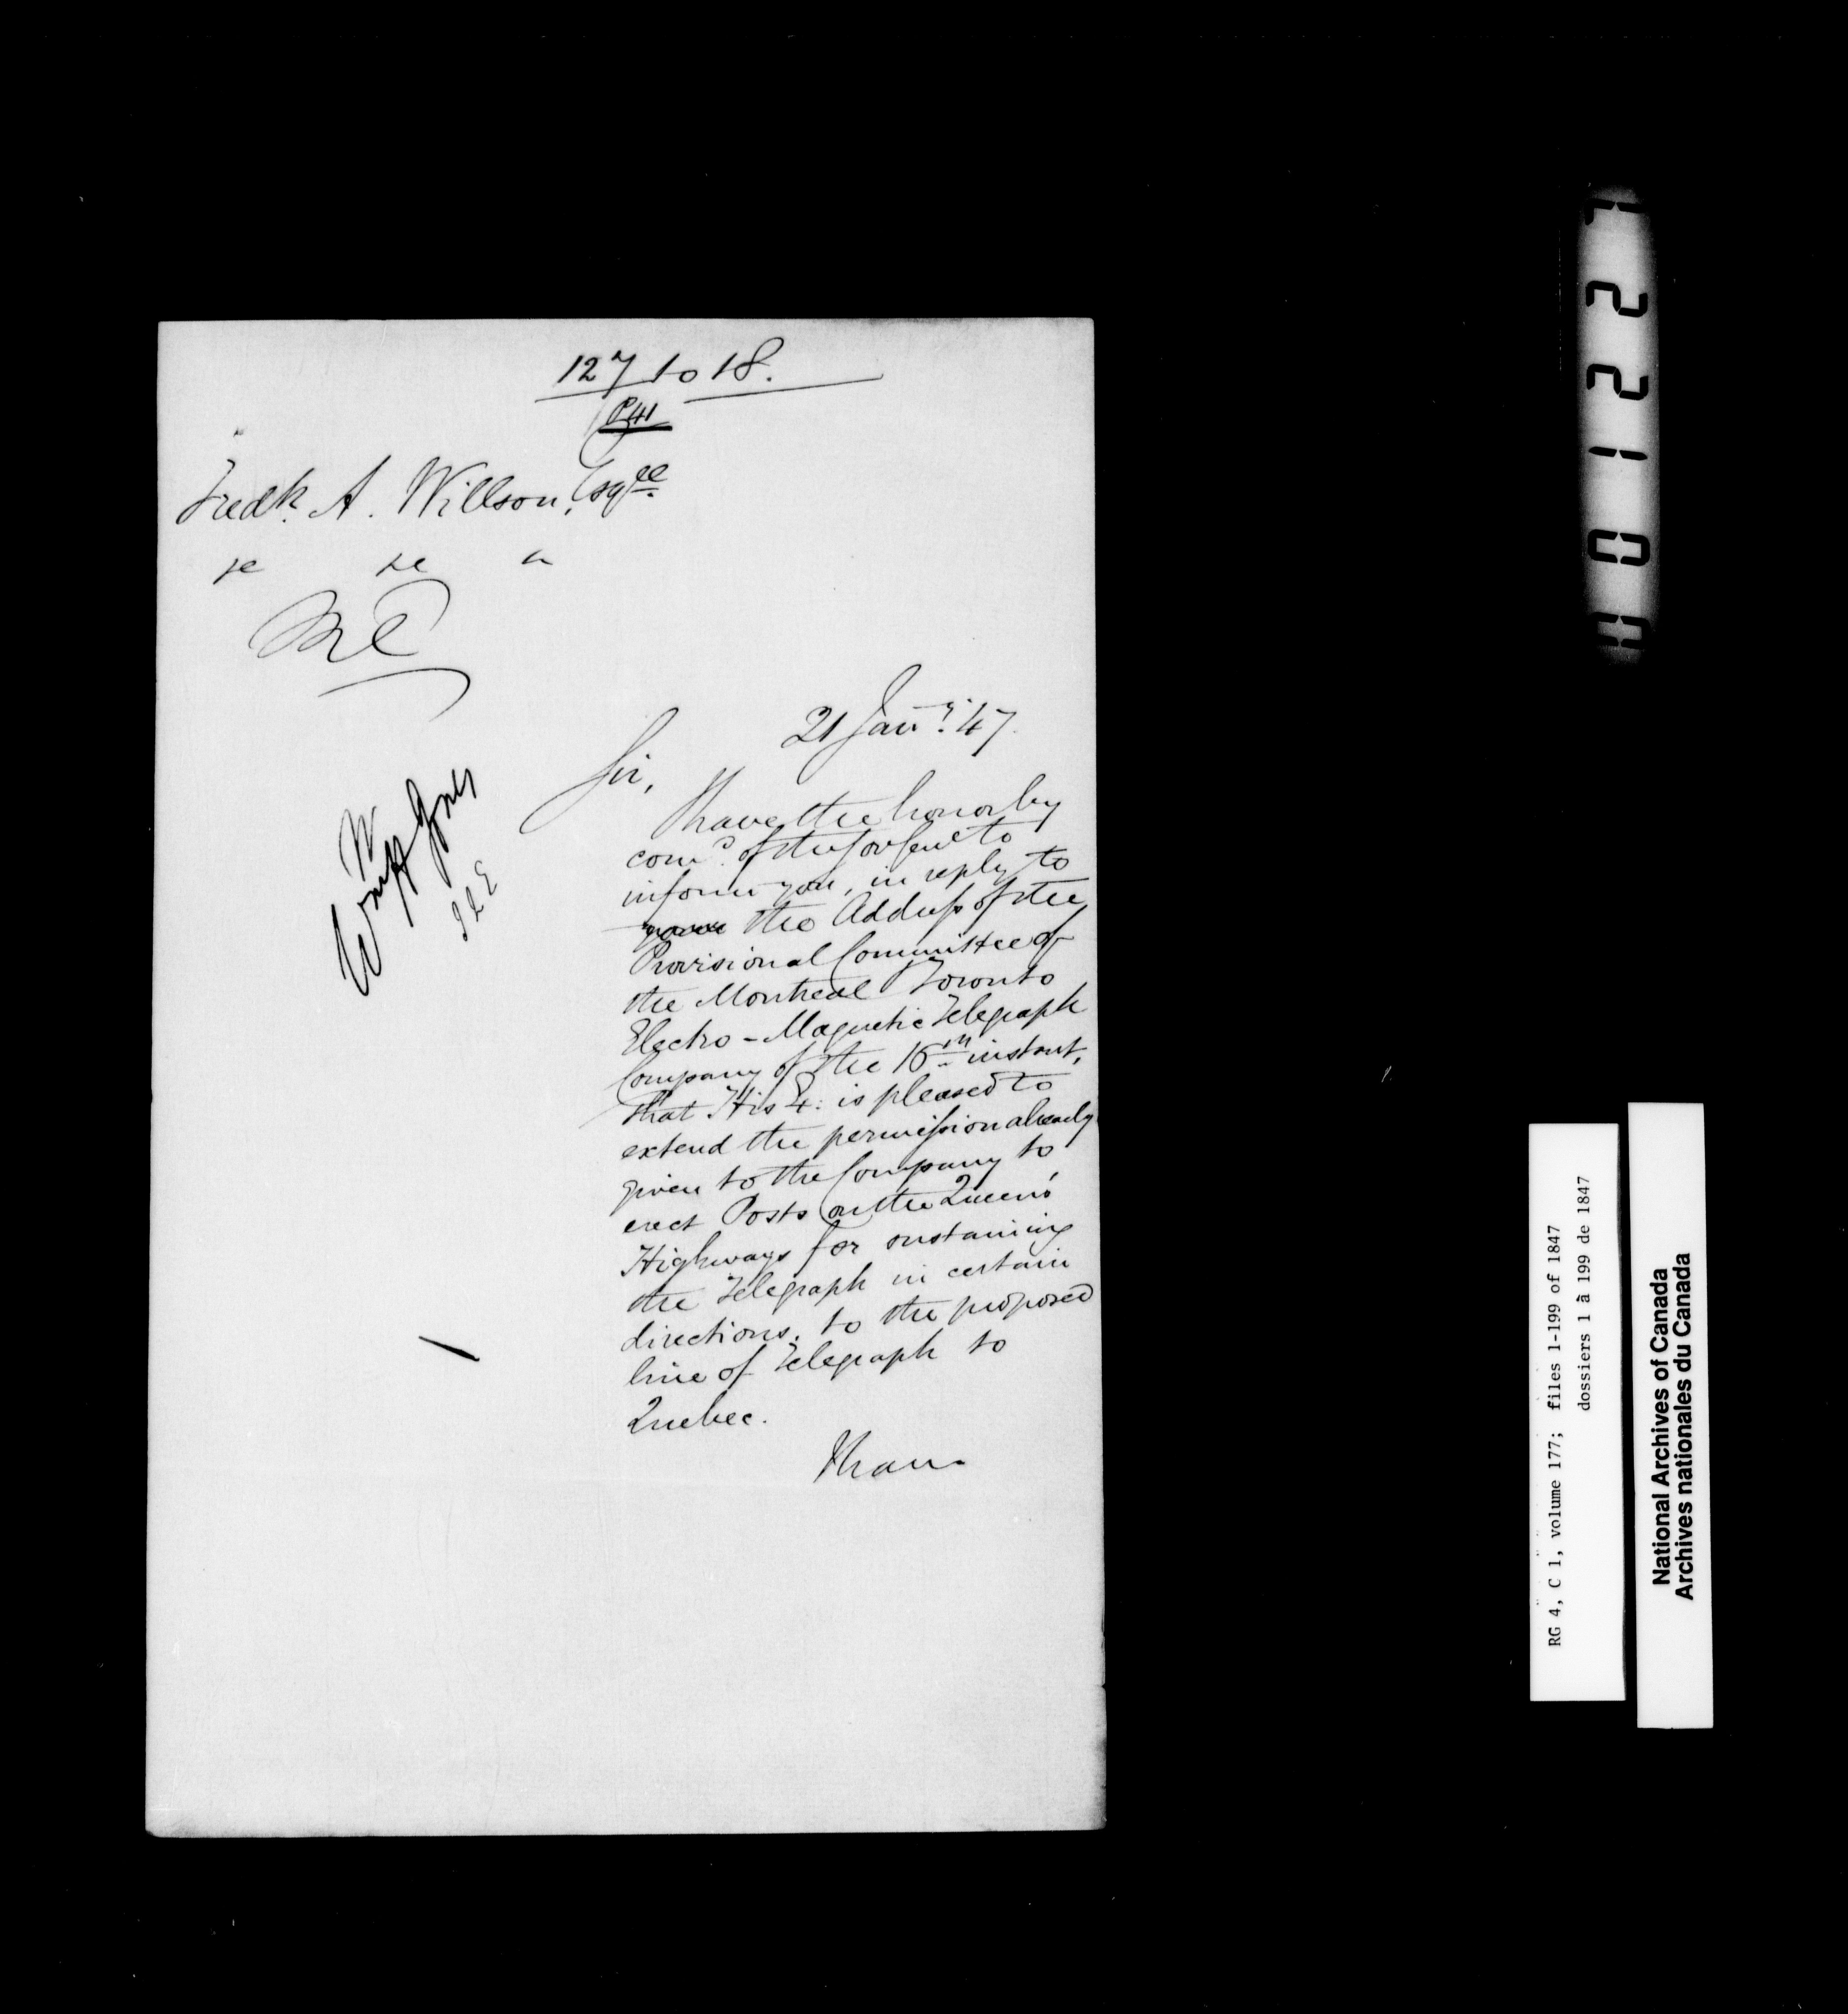 127 to 18.
P 41
Fredk. A. Willson, Esqre
21 Jany. 47.
Sir,
I have the honor by
comd. of the Gov Genl to
inform you, in reply to
the Address of the
Provisional Committee of
the Montreal Toronto
Electro-Magnetic Telegraph
Company of the 16th instant,
that His E. is pleased to
extend the permission already
given to the Company to
erect Posts on the Queen's
Highways for sustaining
the Telegraph in certain
directions, to the proposed
line of Telegraph to
Quebec.
I have
0 1 2 2
RG 4, C 1, volume 177; files 1-199 of 1847
dossiers 1 à 199 de 1847
National Archives of Canada
Archives nationales du Canada